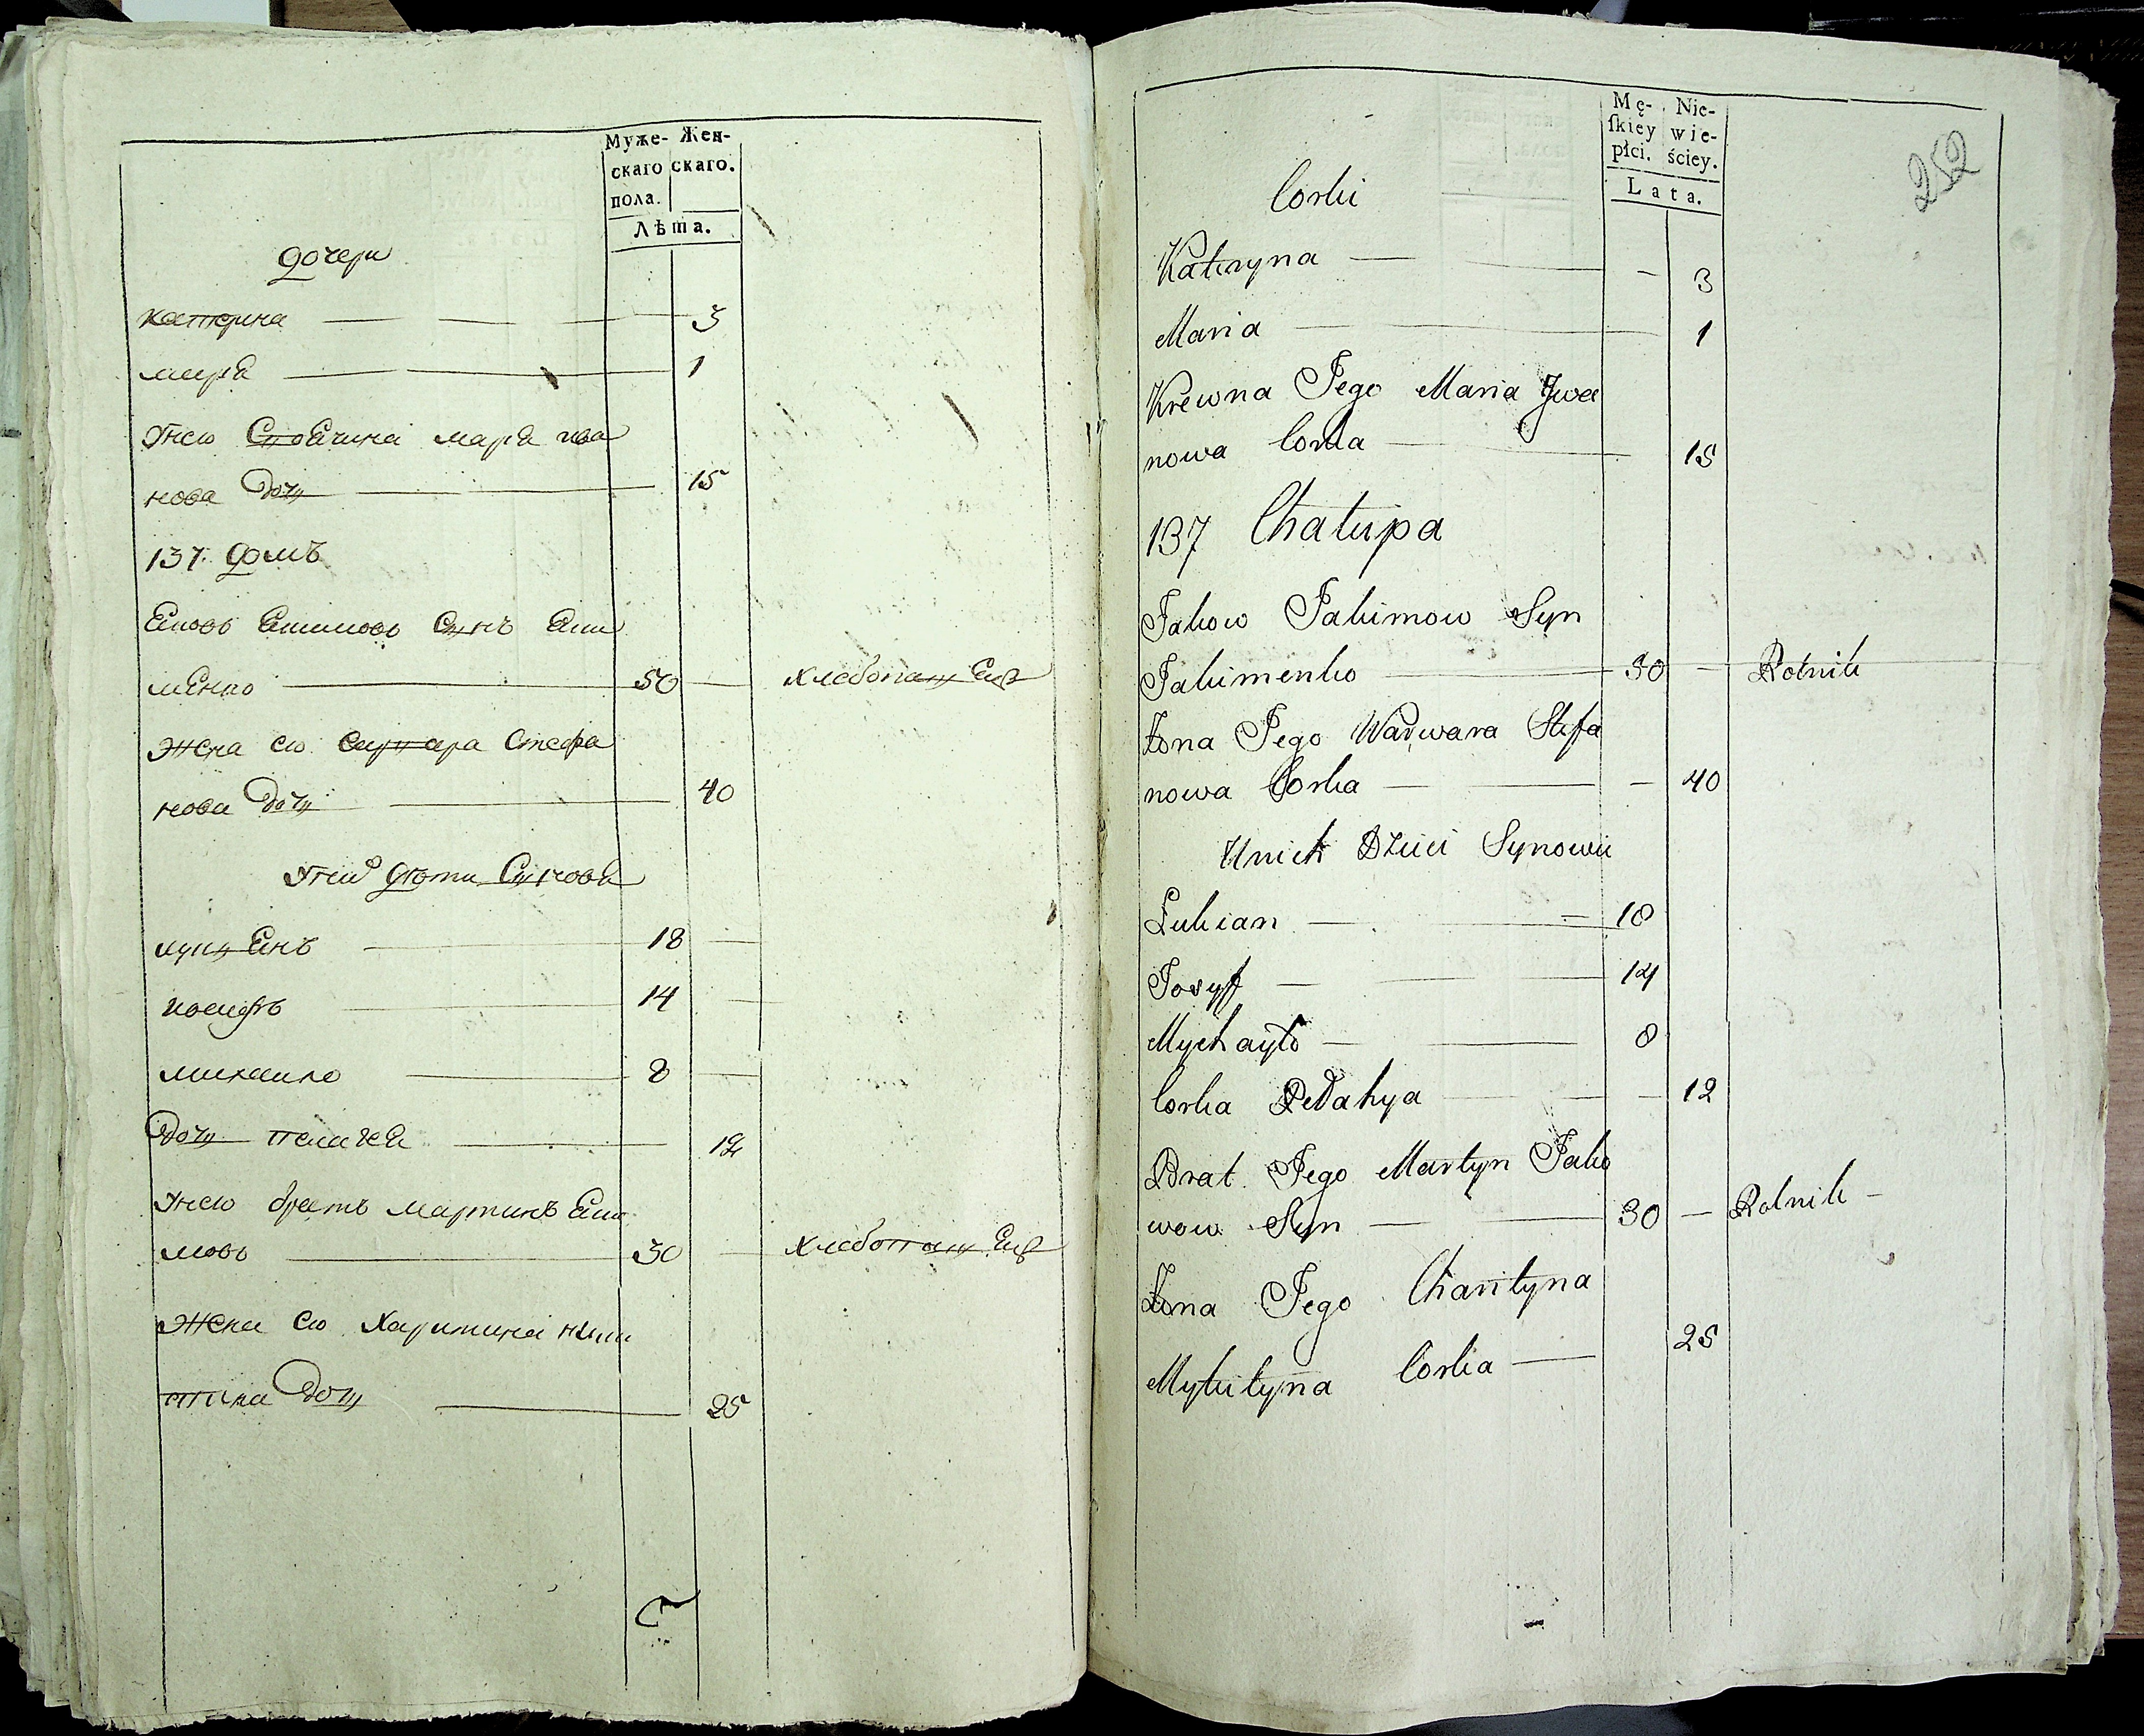 Муже- Жен-
скаго скаго.
пола.
Лѣта.
дочери
катерина 3
мария 1
Унего своячина маря ива
нова дочь 15
137. домъ
Яковъ Якимовъ сынъ Яки
мЕнко 50 хлебопашецъ
жена его варвара Стефа
нова дочь 40
Уних дѣти Сынове
лукиянъ 18
иосифъ 14
михаило 8
дочь пелагея 12
Унего братъ мартинъ Яки
мовъ 30 хлебопашецъ
жена его Харитина ники
тина дочь 25
252
Mę- Nie-
ſkiey wie-
płci. ściey.
Lata.
Corki
Kateryna - 3
Maria 1
Krewna Jego Maria Jwa
nowa Corka 15
137 Chałupa
Jakow Jakimow Syn
Jakimenko 50 Rolnik
Żona Jego Warwara Stefa
nowa Corka - 40
Unich Dzieci Synowie
Łukian 18
Josyff 14
Mychayło 8
Corka Pełahya - 12
Brat Jego Martyn Jako
wow Syn 30 Rolnik -
Żona Jego Charityna
Mykityna Corka 25